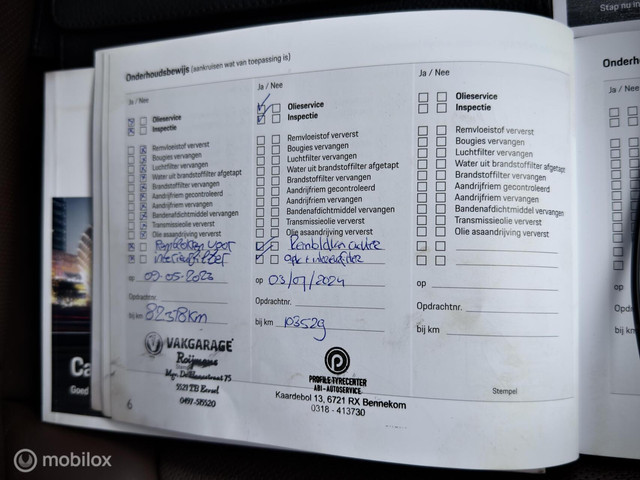 Stap nu in
Onderhoudsbewijs (aankruisen wat van toepassing is)
Ja / Nee
Olieservice
Inspectie
Remvloeistof ververst
Bougies vervangen
Luchtfilter vervangen
Water uit brandstoffilter afgetapt
Brandstoffilter vervangen
Aandrijfriem gecontroleerd
Aandrijfriem vervangen
Bandenafdichtmiddel vervangen
Transmissieolie ververst
Olie asaandrijving ververst
Remblokken voor
interieurfilter
op 09-05-2023
Opdrachtnr.
bij km 82378km
VAKGARAGE
Roijmans
5521 EB Eersel
0497-516520
6
Ja / Nee
Olieservice
Inspectie
Remvloeistof ververst
Bougies vervangen
Luchtfilter vervangen
Water uit brandstoffilter afgetapt
Brandstoffilter vervangen
Aandrijfriem gecontroleerd
Aandrijfriem vervangen
Bandenafdichtmiddel vervangen
Transmissieolie ververst
Olie asaandrijving ververst
Remblokken
op 03/07/2024
Opdrachtnr.
bij km 103529
PROFILE TYRECENTER
ABI-AUTOSERVICE
Kaardebol 13, 6721 RX Bennekom
0318 - 413730
Ja / Nee
Olieservice
Inspectie
Remvloeistof ververst
Bougies vervangen
Luchtfilter vervangen
Water uit brandstoffilter afgetapt
Brandstoffilter vervangen
Aandrijfriem gecontroleerd
Aandrijfriem vervangen
Bandenafdichtmiddel vervangen
Transmissieolie ververst
Olie asaandrijving ververst
op
Opdrachtnr.
bij km
Stempel
Onderh
Ja / Nee
Ca
Goed
mobilox